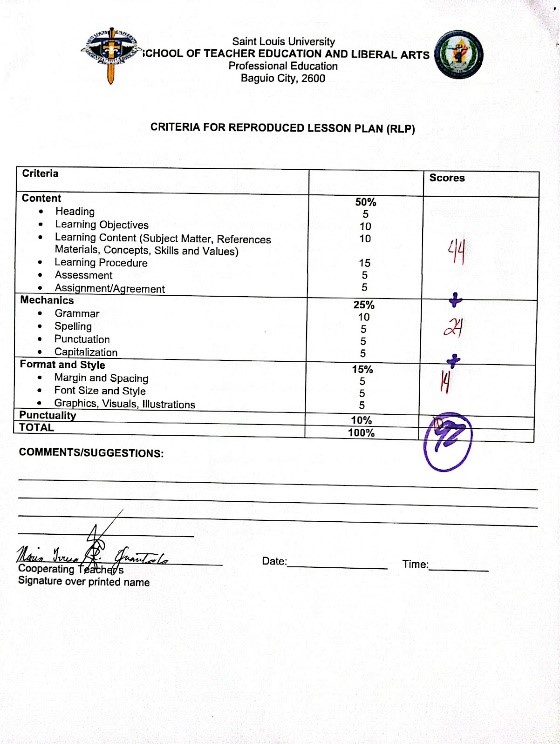 Saint Louis University
SCHOOL OF TEACHER EDUCATION AND LIBERAL ARTS
Professional Education
Baguio City, 2600
CRITERIA FOR REPRODUCED LESSON PLAN (RLP)
Criteria Scores
Content 50%
• Heading 5
• Learning Objectives 10
• Learning Content (Subject Matter, References 10
Materials, Concepts, Skills and Values)
44
• Learning Procedure 15
• Assessment 5
• Assignment/Agreement 5
Mechanics 25% +
• Grammar 10
• Spelling 5 24
• Punctuation 5
• Capitalization 5
Format and Style 15% +
• Margin and Spacing 5 14
• Font Size and Style 5
• Graphics, Visuals, Illustrations 5
Punctuality 10% 10
TOTAL 100% 92
COMMENTS/SUGGESTIONS:
Cooperating Teacher/s Date: Time:
Signature over printed name